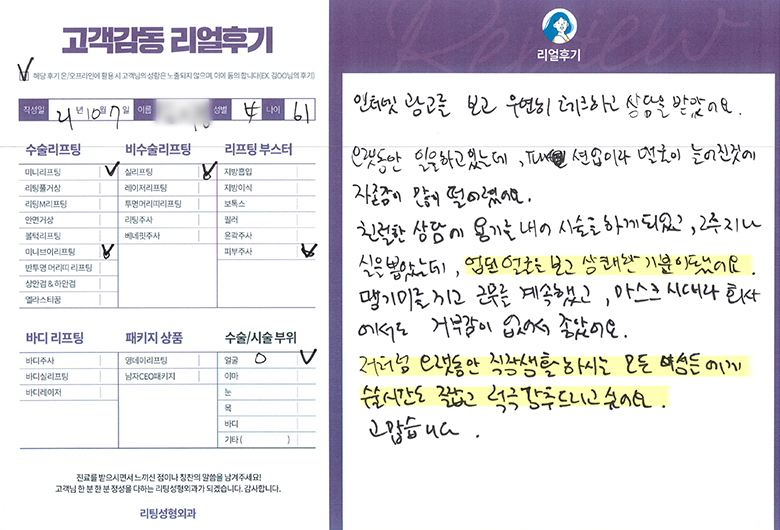 고객감동 리얼후기
해당 후기 온/오프라인에 활용 시 고객님의 성함은 노출되지 않으며, 이에 동의 합니다(EX. 김OO님의 후기)
작성일 21년 10월 7일 이름 성별 女 나이 61
수술리프팅
미니리프팅
리팅풀거상
리팅M리프팅
안면거상
볼턱리프팅
미니브이리프팅
반투명 머리띠 리프팅
상안검 & 하안검
엘라스티꿈
비수술리프팅
실리프팅
레이저리프팅
투명머리띠리프팅
리팅주사
베네핏주사
리프팅 부스터
지방흡입
지방이식
보톡스
필러
윤곽주사
피부주사
바디 리프팅
바디주사
바디실리프팅
바디레이저
패키지 상품
영데이리프팅
남자CEO패키지
수술/시술 부위
얼굴 O
이마
눈
목
바디
기타 ( )
진료를 받으시면서 느끼신 점이나 칭찬의 말씀을 남겨주세요!
고객님 한 분 한 분 정성을 다하는 리팅성형외과가 되겠습니다. 감사합니다.
리팅성형외과
Review
리얼후기
인터넷 광고를 보고 우연히 체크하고 상담을 받았어요.
오랫동안 일을하고있는데, 션업이라 얼굴이 늘어진것에
자존감이 많이 떨어졌어요.
친절한 상담에 용기를 내어 시술을 하게되었고, 2주지나
실을뽑았는데, 업된얼굴을보고 상쾌한 기분이됐어요.
땡기미를 하고 근무를 계속했고, 마스크 시대라 회사
에서도 거부감이 없어서 좋았어요.
저처럼 오랫동안 직장생활하시는 모든 여성들에게
수술시간도 짧고 적극강추드리고 싶어요.
고맙습니다.